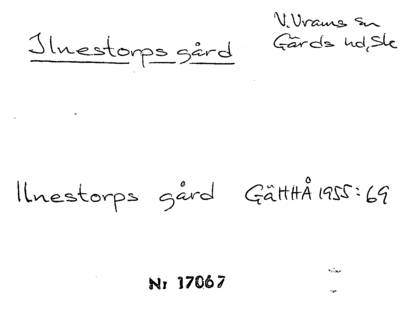 Ilnestorps gård
V. Vrams sn
Gärds hd, Sk
Ilnestorps gård GäHHÅ 1955:69
Nr 17067